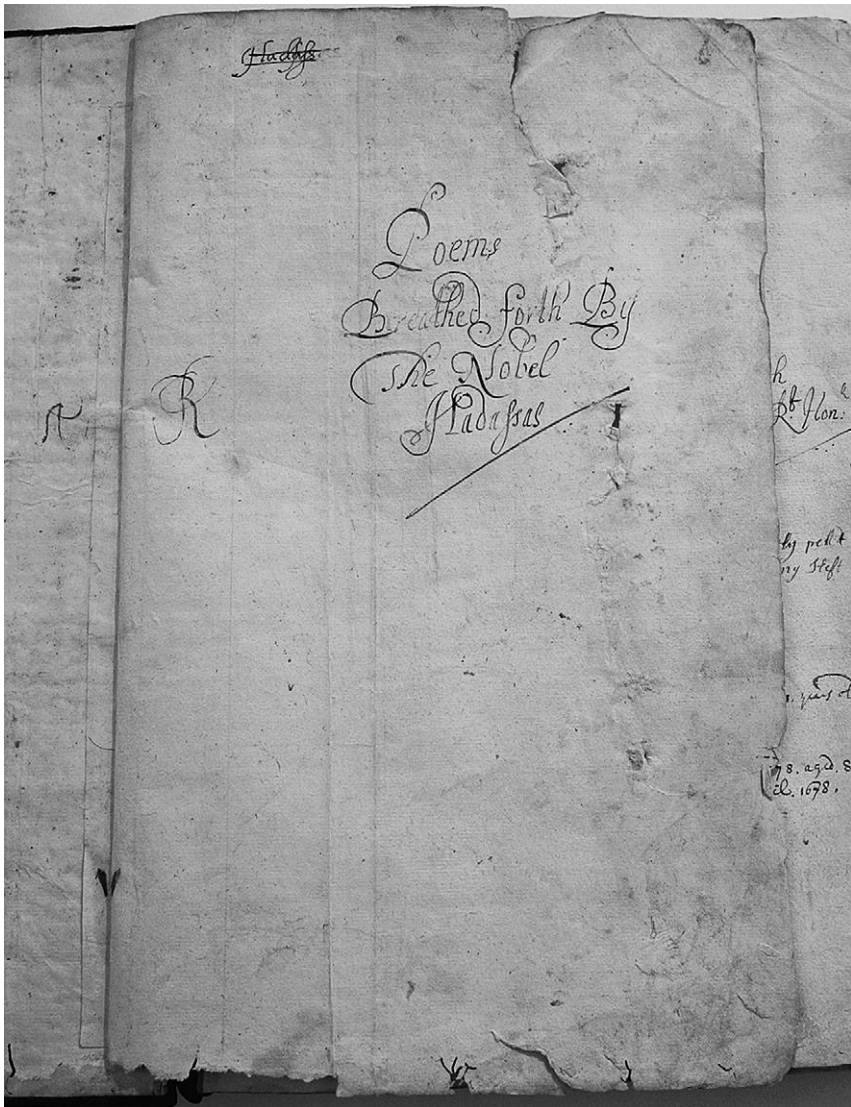 Hadass
Poems
Breathed forth By
The Nobel
Hadassas
R
h
Rt Hon:
ny
years
78. aged. 8
1678.